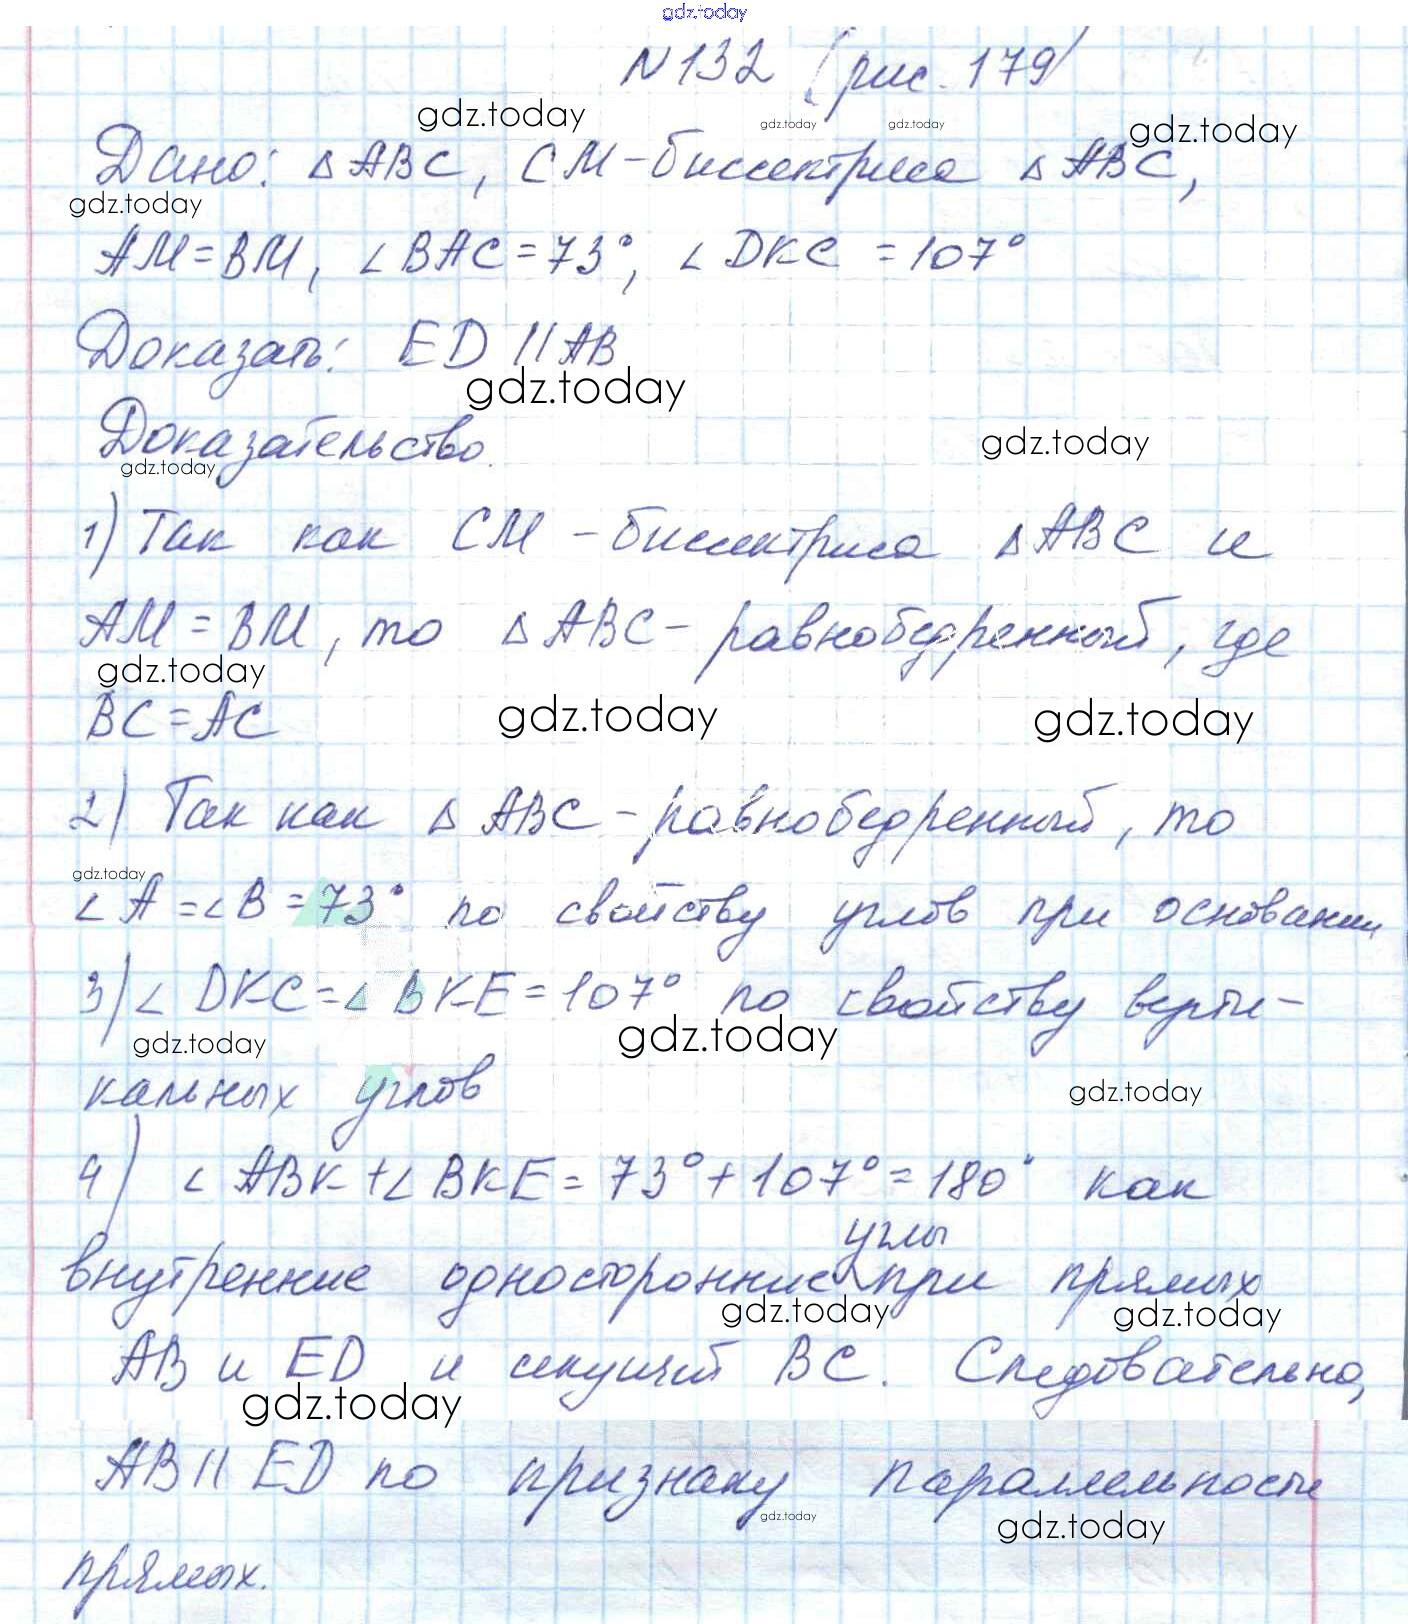 gdz.today
N 132 (рис. 179)
gdz.today
gdz.today gdz.today gdz.today
Дано: △ ABC, CM - биссектриса △ ABC,
gdz.today
AM = BM, ∠ BAC = 73°, ∠ DKC = 107°
Доказать: ED || AB
gdz.today
Доказательство.
gdz.today
gdz.today
1) Так как CM - биссектриса △ ABC и
AM = BM, то △ ABC - равнобедренный, где
gdz.today
BC = AC
gdz.today gdz.today
2) Так как △ ABC - равнобедренный, то
gdz.today
∠ A = ∠ B = 73° по свойству углов при основании
3) ∠ DKC = ∠ BKE = 107° по свойству верти-
gdz.today gdz.today
кальных углов
gdz.today
4) ∠ ABK + ∠ BKE = 73° + 107° = 180° как
внутренние односторонние углы при прямых
gdz.today gdz.today
AB и ED и секущей BC. Следовательно,
gdz.today
AB || ED по признаку параллельности
gdz.today gdz.today
прямых.